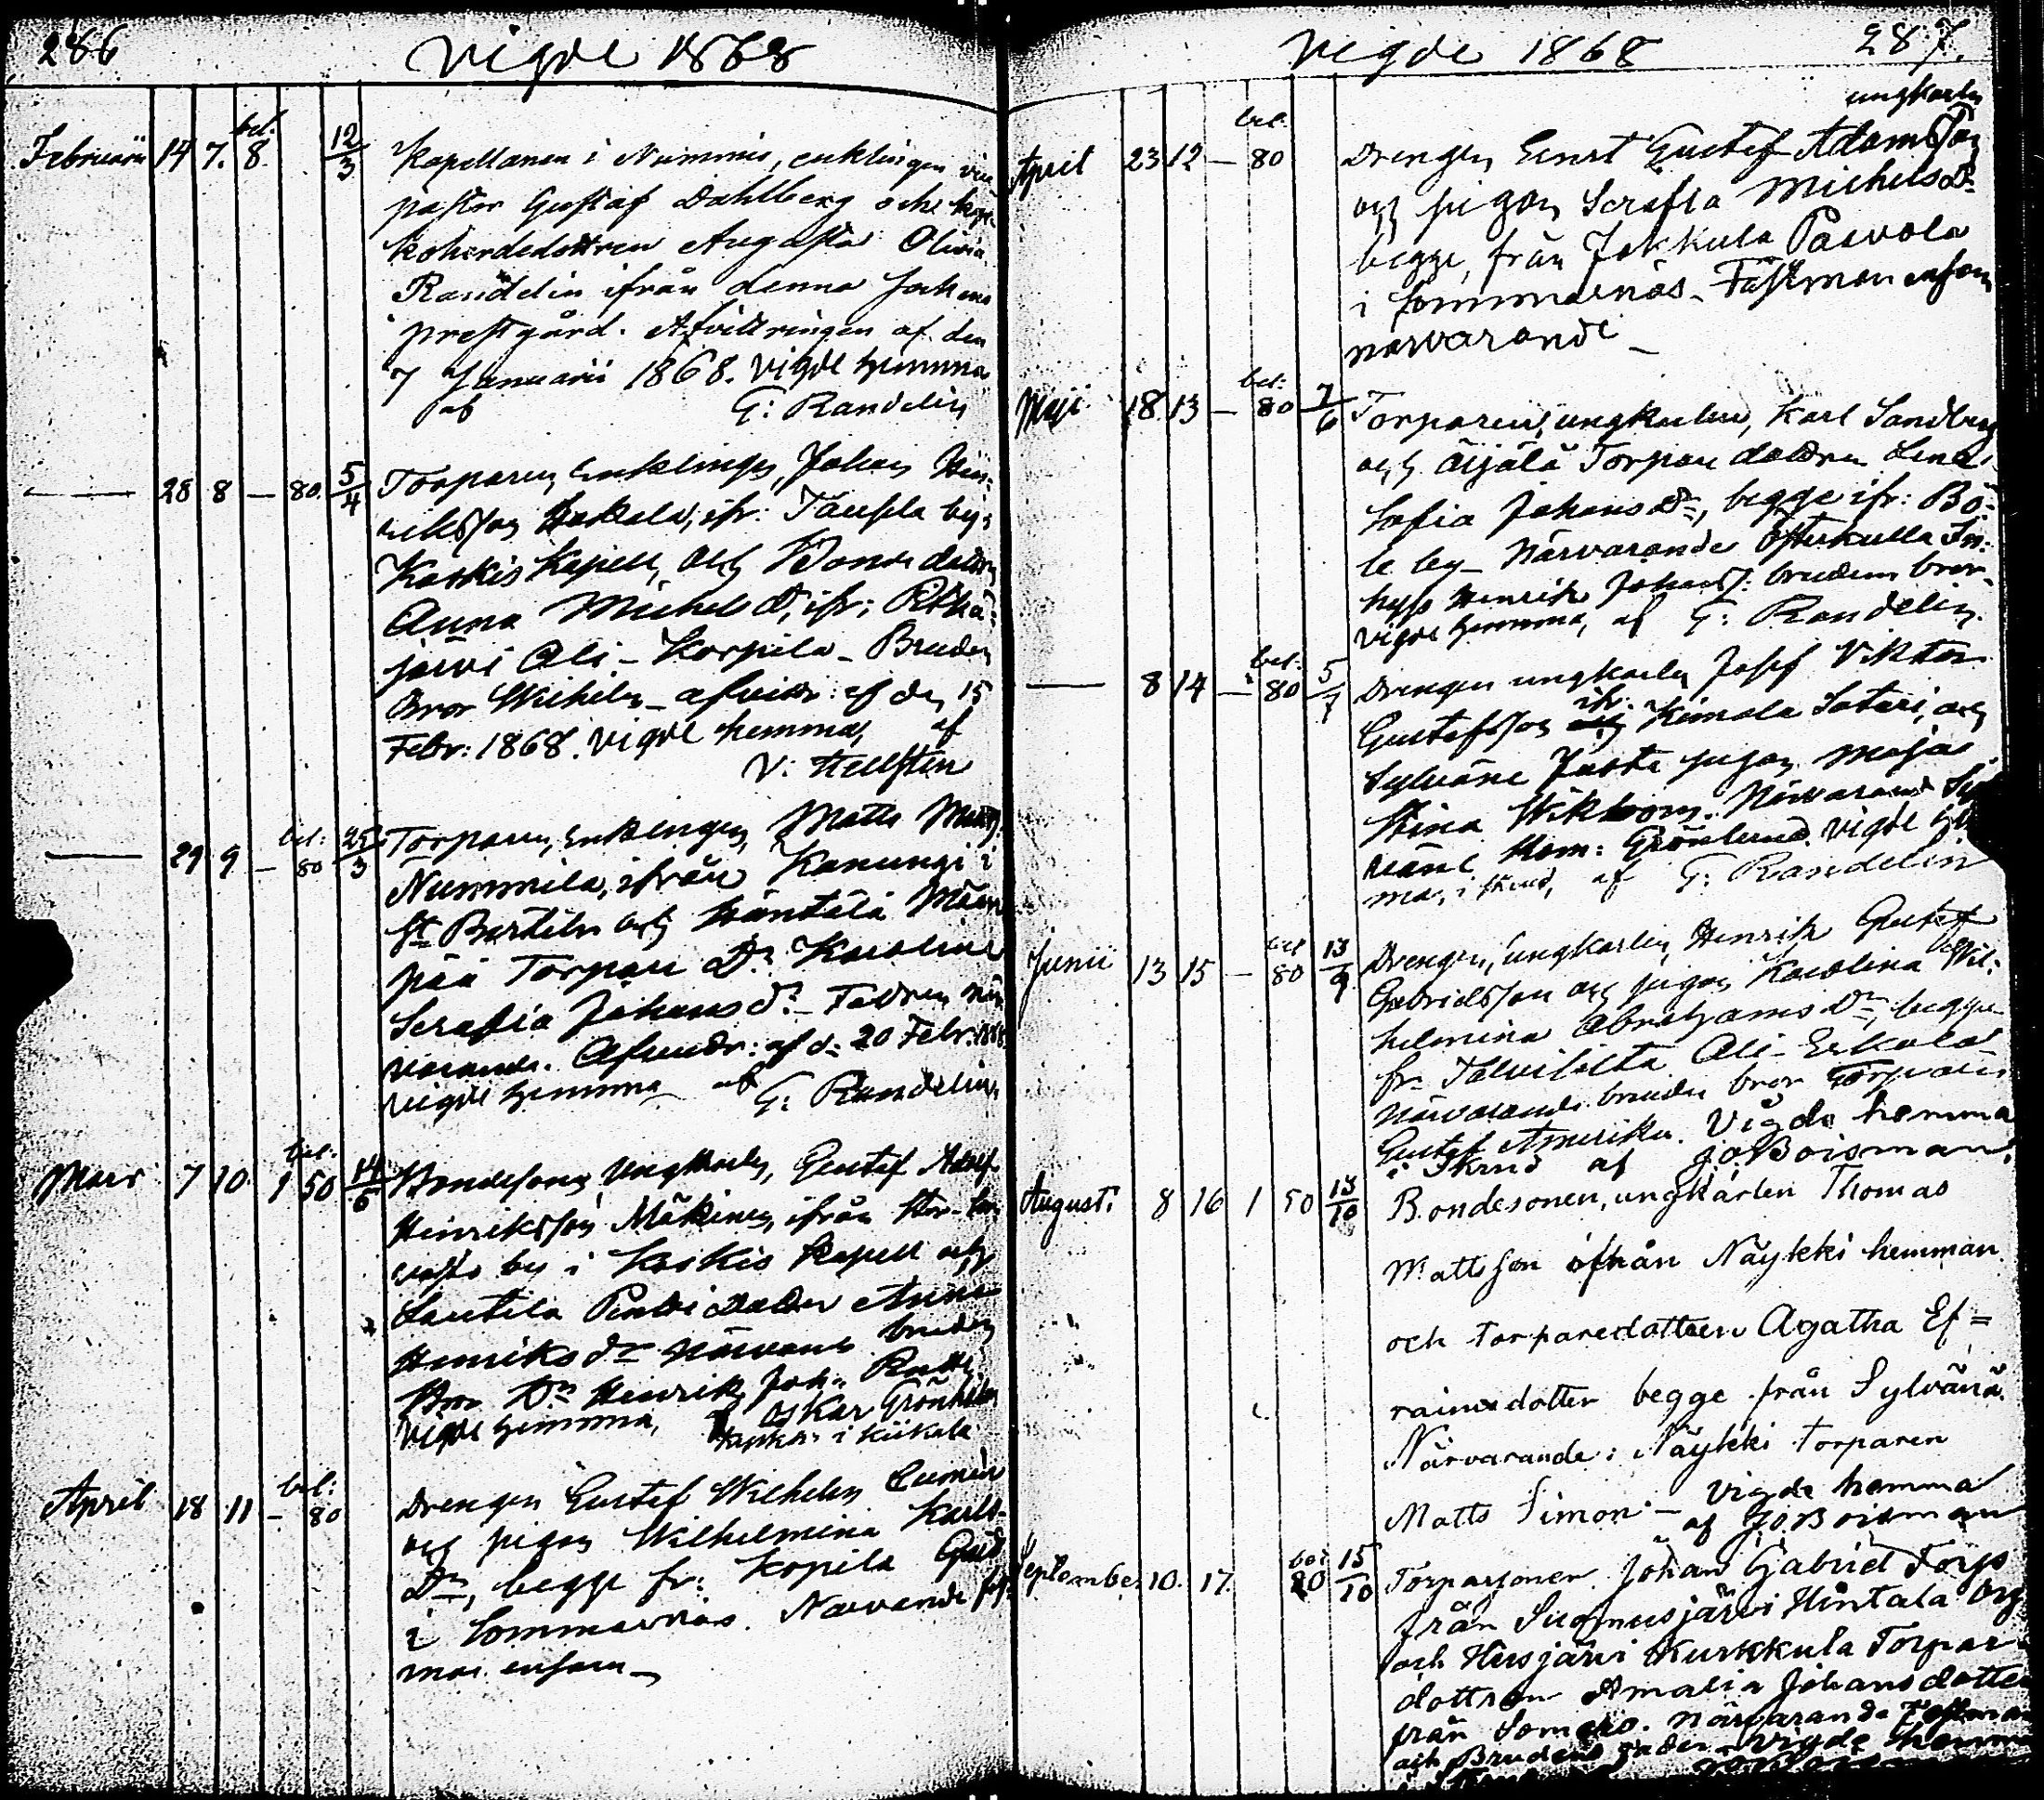 286
Vigde 1868
Februarii 14 7. bet. 8. 12/3 Kapellanen i Nummis, enklingen vice
pastor Gustaf Dahlberg och kyr
koherdedottren Augusta Olivia
Randelin ifrån denna Sockens
prestgård. Afvittringen af den
7 Januarii 1868. Vigde hemma
af G: Randelin
— 28 8 — 80. 5/4 Torparen, Enklingen, Johan Hin-
riksson ifr: Taupla by i
Koskis Kapell, och Bonde dottren
Anna Michels d:r, ifr: Pitkä-
järvi Ali-Korpila - Bruden
Bror Wilhelm - afvittr: af den 15
Febr: 1868. Vigde hemma, af
V: Hellsten
— 29 9 — bet: 80 25/3 Torparen, Enklingen, Matts
Nummila, ifrån Kanungi i
S:t Bertils och Häntälä
pää Torpare D:r Karolina
Serafia Johans d:r - Fadren när
varande. Afvittr: af d: 20 Febr. 1868
Vigde hemma af G: Randelin
Mars 7 10. bet. 1 50 14/6 Bondesonen, Ungkarlen, Gustaf Adolf
Henriksson Mäkinen, ifrån
by i Koskis Kapell och
Lautela dotter Anna
Henriks d:r närvarande bruden
Bror D:n Henrik Joh:
Vigde hemma, Oskar Grönholm
i Kiikala
April 18 11 bet: – 80 Drengen Gustaf Wilhelm
och pigan Wilhelmina Karls
D:r, begge fr: Kopila
i Sommarnäs. Närvarande
man ensam —
Vigde 1868
287.
ungkarlen
April 23 12 — bet. 80 Drengen Ernst Gustaf Adamsson
och pigan Serafia Michels D:r
begge, från Jakkula Paavola
i Sommarnäs - Fästman ensam
närvarande —
Maji 18. 13 — bet: 80 7/6 Torparen, ungkarlen, Karl Sandberg
och Äijälä Torpare dottren Lena
Sofia Johans D:r, begge ifr: Bö-
le by - Närvarande Österkulla In-
hyss Henrik Johans S. brudens bror -
Vigde hemma, af G: Randelin.
— 8 14 — bet: 80 5/7 Drengen ungkarlen Josef Viktor
Gustafsson ifr. Kimola Sateri, och
Sylvänä Juste pigan Maja
Stina Wikbom. Närvarande Syl
vänä Hem: Grönlund. Vigde hem
ma, i Åkerd, af G: Randelin
Junii 13 15 — bet 80 13/9 Drengen, Ungkarlen, Henrik Gustaf
Gabrielsson och pigan Karolina Wil-
helmina Abrahams D:r, begge
fr. Talvisilta Ali-Erkola
Närvarande brudens bror Torparen
Gustaf Amerika. Vigde hemma
i Åkerd af Jo Boisman.
Augusti 8 16 1 50 13/10 Bondesonen, ungkarlen Thomas
Mattsson ifrån Näykki hemman
och torparedottren Agatha Ef=
raimsdotter begge från Sylvänä.
Närvarande: Näykki torparen
Matts Simon — Vigde hemma
af Jo. Boisman
September 10. 17. 80 15/10 Torparsonen Johan Gabriel Törs
från Suomusjärvi Hintala by
och Hirsjärvi Kurkkula Torpar-
dottren Amalia Johansdotter
från Somero. Närvarande Festman
och Brudens fader - Vigde hemma